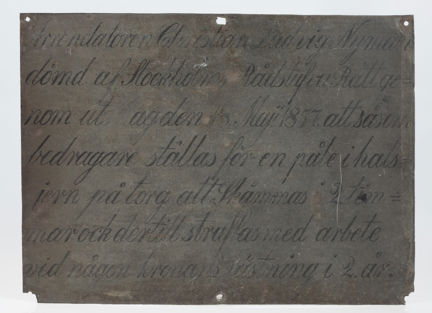 Arrendatoren Christian Ludvig Nyman
dömd af Stockholms Rådstufvu Rätt ge=
nom utslag den Maji 1857. att såsom
bedragare ställas för en påle i hals=
jern på torg att skämmas i 2 tim=
mar och dertill straffas med arbete
vid någon kronans fästning i 2. år.